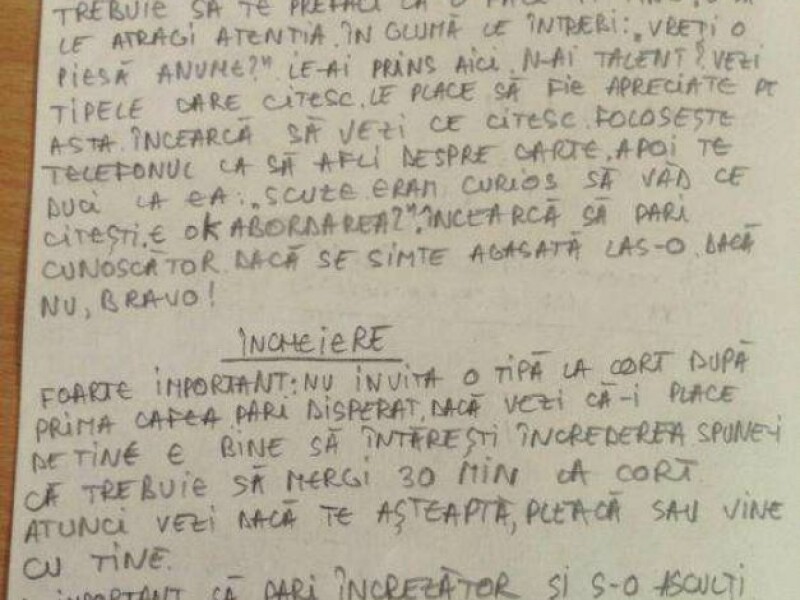 TREBUIE SĂ TE PREFACI CĂ
LE ATRAGI ATENȚIA. ÎN GLUMĂ LE ÎNTREBI: „VREȚI O
PIESĂ ANUME?" LE-AI PRINS AICI. N-AI TALENT? VEZI
TIPELE CARE CITESC. LE PLACE SĂ FIE APRECIATE PT
ASTA. ÎNCEARCĂ SĂ VEZI CE CITESC. FOLOSEȘTE
TELEFONUL CA SĂ AFLI DESPRE CARTE. APOI TE
DUCI LA EA: „SCUZE ERAM CURIOS SĂ VĂD CE
CITEȘTI. E OK ABORDAREA?". ÎNCEARCĂ SĂ PARI
CUNOSCĂTOR. DACĂ SE SIMTE AGASATĂ LAS-O. DACĂ
NU, BRAVO!
ÎNCHEIERE
FOARTE IMPORTANT: NU INVITA O TIPĂ LA CORT DUPĂ
PRIMA CAFEA PARI DISPERAT. DACĂ VEZI CĂ-I PLACE
DE TINE E BINE SĂ ÎNTĂREȘTI ÎNCREDEREA SPUNE-I
CĂ TREBUIE SĂ MERGI 30 MIN LA CORT.
ATUNCI VEZI DACĂ TE AȘTEAPTĂ, PLEACĂ SAU VINE
CU TINE.
IMPORTANT CĂ PARI ÎNCREZĂTOR ȘI S-O ASCULȚI.